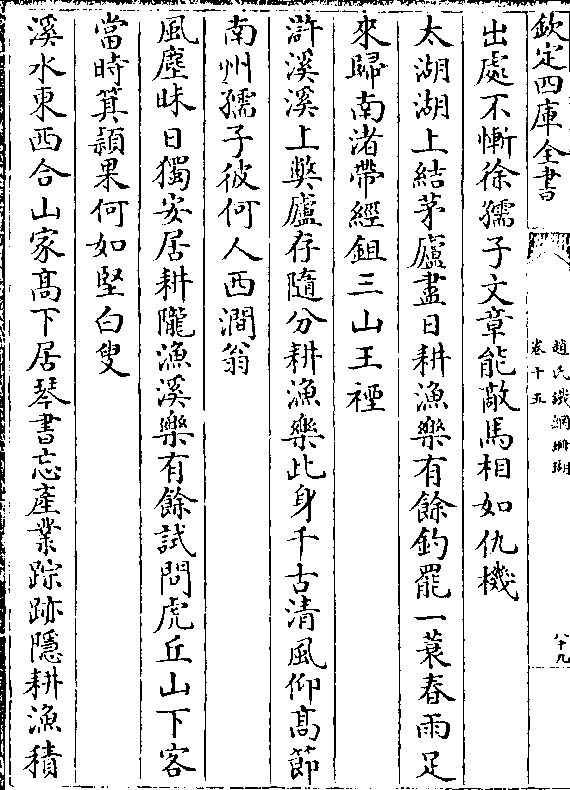 欽定四庫全書
趙氏鐵網珊瑚
卷十五
八十九
出處不慚徐孺子文章能敵馬相如仇機
太湖湖上結茅廬盡日耕漁樂有餘釣罷一蓑春雨足
來歸南渚帶經鉏三山王禋
滸溪溪上弊廬存隨分耕漁樂此身千古清風仰高節
南州孺子彼何人西澗翁
風塵昧日獨安居耕隴漁溪樂有餘試問虎丘山下客
當時箕潁果何如堅白叟
溪水東西合山家高下居琴書忘產業踪跡隱耕漁積